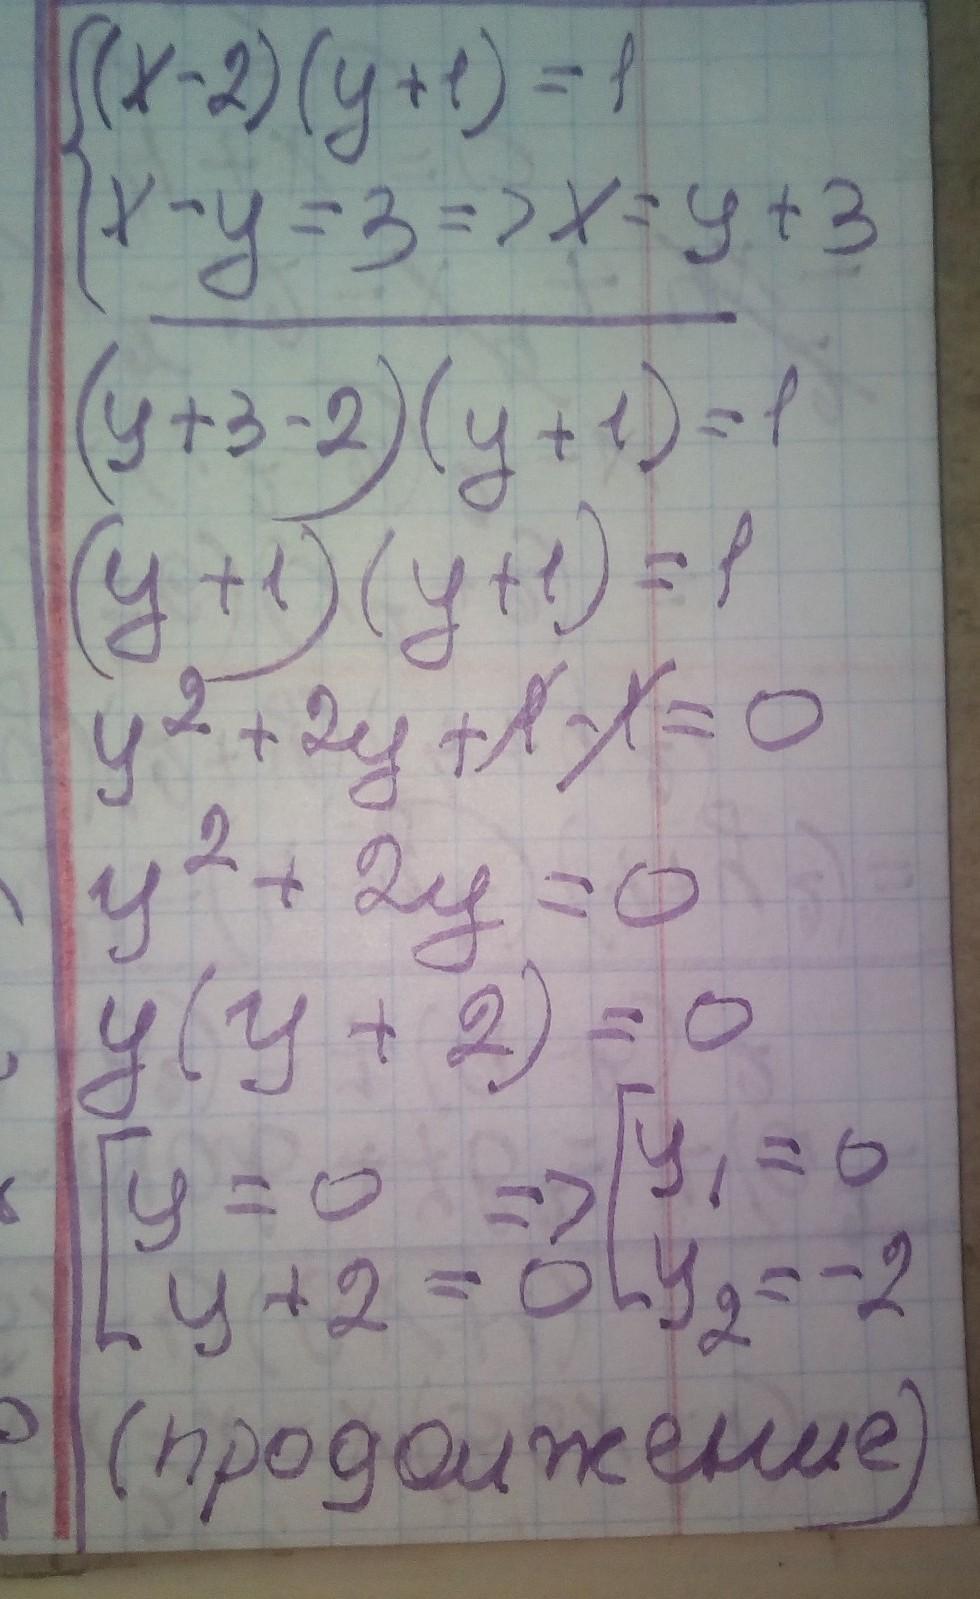 (x-2)(y+1)=1
x-y=3=>x=y+3
(y+3-2)(y+1)=1
(y+1)(y+1)=1
y²+2y+1-1=0
y²+2y=0
y(y+2)=0
y=0 => y₁=0
y+2=0 y₂=-2
(продолжение)